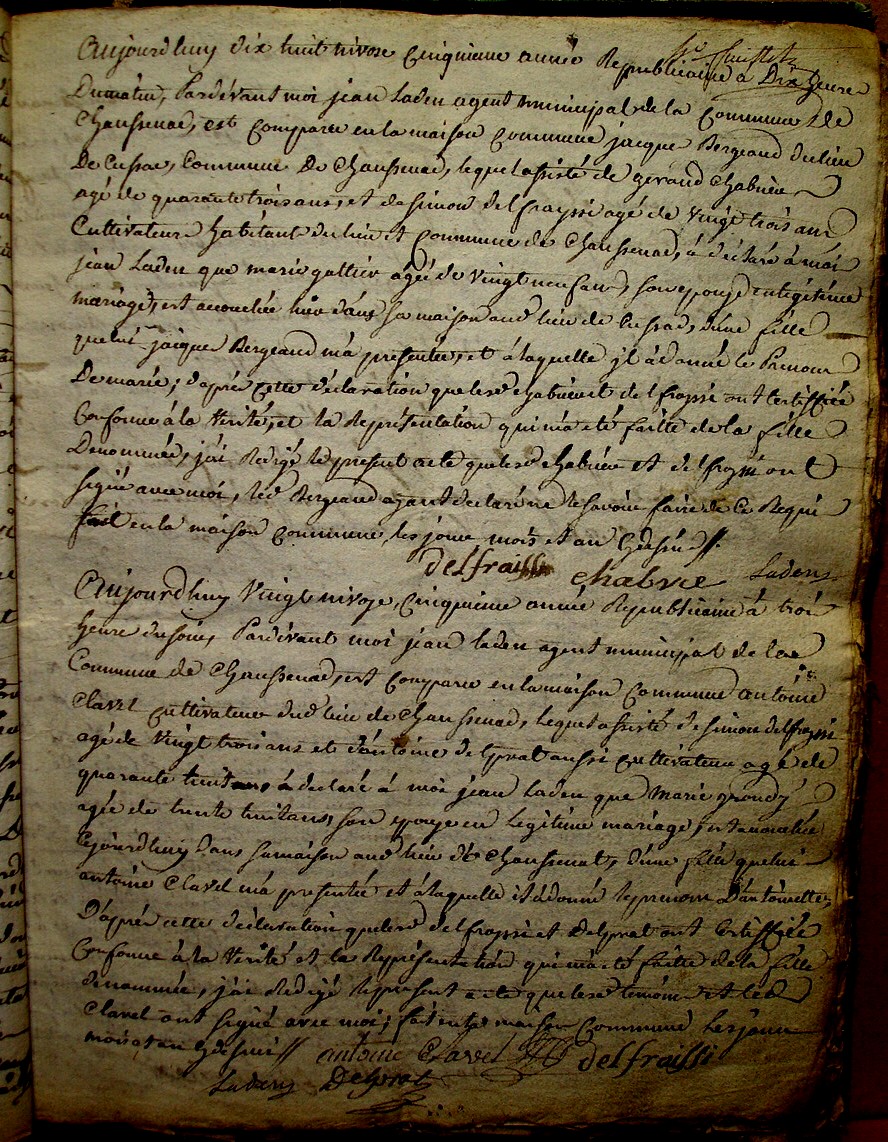 Aujourdhuy dix huit nivose cinquieme année Republicaine a Dix heure
Dumatin, Pardevant moi jean Laden agent municipal de la Commune de
Chaussenac, est comparu en la maison Commune jacque Bergeaud du lieu
De Cussac, Commune De Chaussenac, lequel assisté de geraud Chabrier
agé de quarante trois ans, et de simon delfrayssi agé de vingt trois ans
Cultivateurs habitant du lieu et commune de Chaussenac, à déclaré à moi
jean Laden que marie galtier agée de vingt neuf ans, son epouse en legitime
mariage, est accouchée hier dans sa maison aud lieu de Cussac, d'une fille
quelui jacque Bergeaud m'a presentée, et a laquelle il à donné le Prenom
De marie; d'aprés cette déclaration que lesd chabrier et delfrayssi ont certiffiée
Conforme à la Verité, et la Représentation qui m'a été faitte de la fille
Denommée, j'ai Redigé le present acte que lesd chabrier et delfrayssi ont
signé avec moi, led Bergeaud ayant declaré ne le savoir faire de ce Requi
fait en la maison commune, les jour mois et an cydessus
delfraissi chabrie Ladens
Aujourdhuy Vingt nivose, cinquieme année Republicaine à troi
heure dusoir, Pardevant moi jean laden agent municipal de la
Commune de Chaussenac, est comparu en la maison Commune antoine
Clavel cultivateur dud lieu de Chaussenac, lequel assisté de simon delfrayssi
agé de Vingt trois ans et d'antoine delprat aussi cultivateur agé de
quarante huit ans, à declaré à moi jean laden que Marie
agée de trente huit ans, son epouse en Legitime mariage, est accouchée
dans sa maison aud lieu de Chaussenat, d'une fille quelui
antoine Clavel m'a presentée et a laquelle il à donné le prenom D'antoinette,
D'aprés cette déclaration que lesd delfrayssi et Delprat ont certiffiée
Conforme à la Verité et la Représentation qui m'a été faitte de la fille
denommée, j'ai Redigé le present acte que lesd temoins et led
Clavel ont signé avec moi; fait en la maison commune les jour
mois et an cydessus antoine Clavel delfraissi
Ladens Delprat